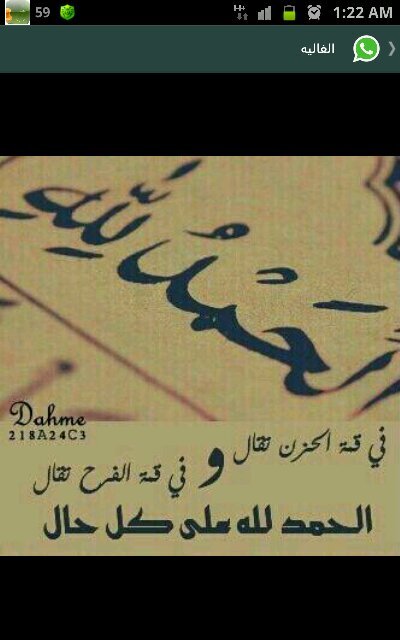 59 1:22 AM
الغاليه
الحمد لله
Dahme
218A24C3
في قمة الحزن تقال
و
في قمة الفرح تقال
الحمد لله على كل حال